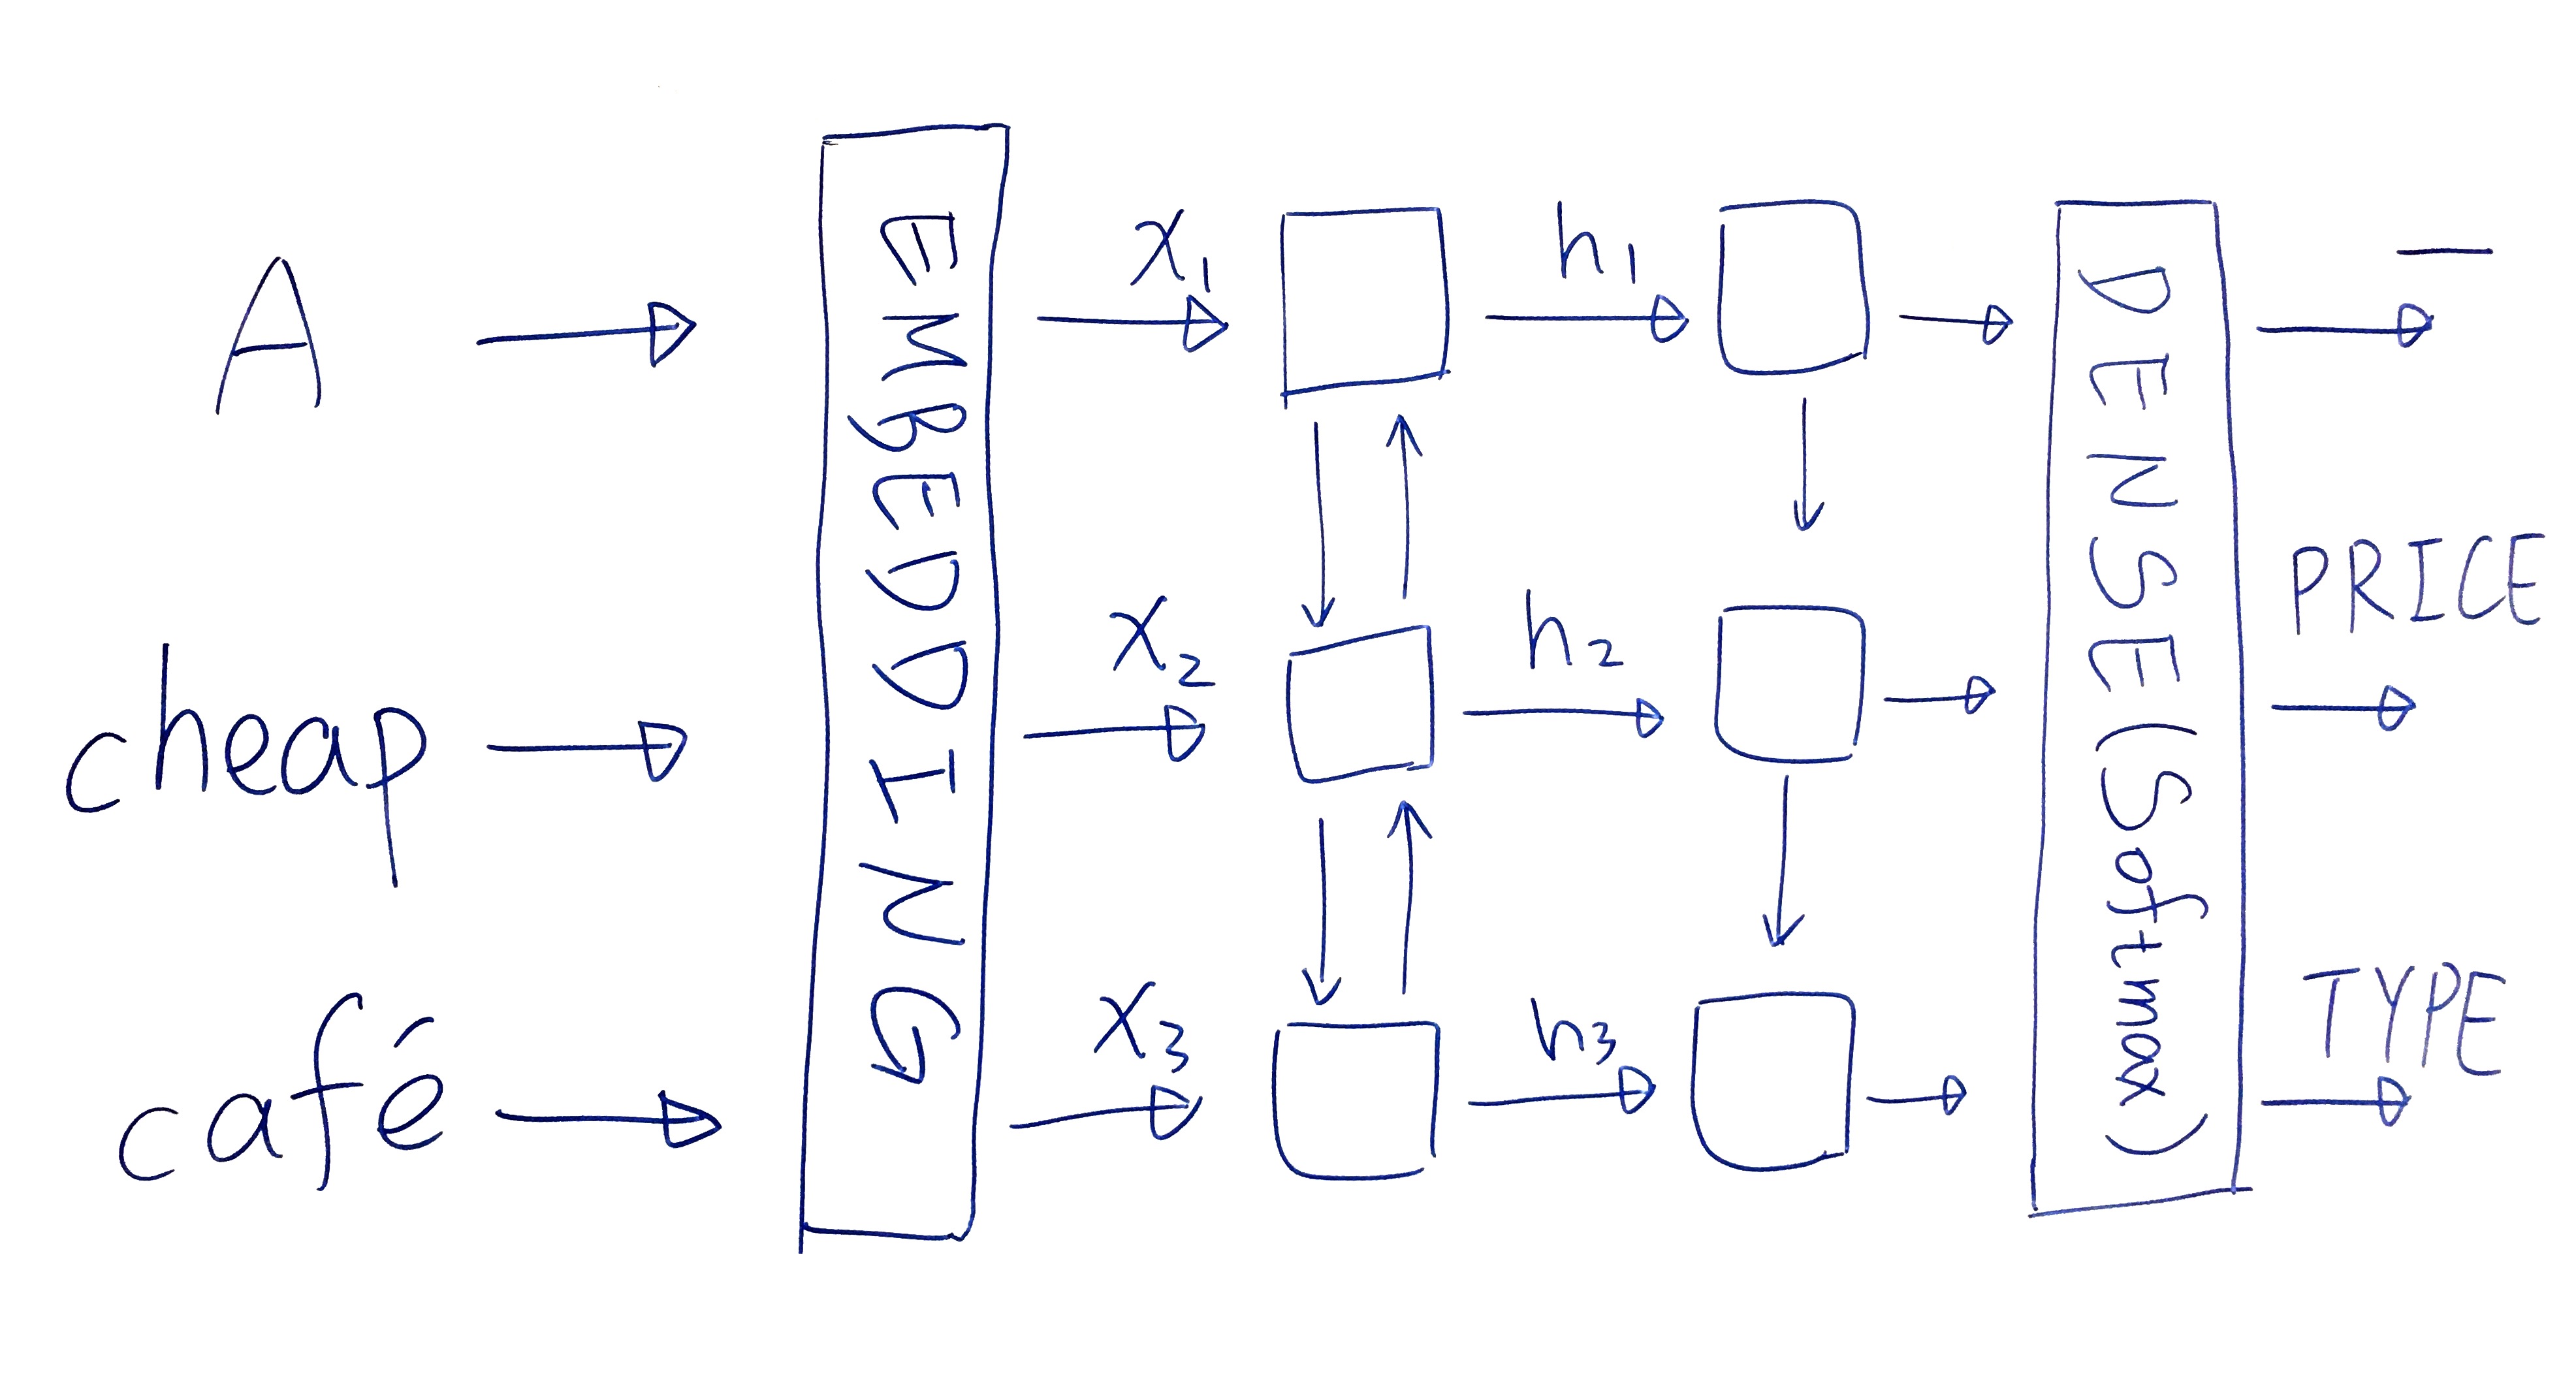 A
cheap
café
EMBEDDING
x₁
x₂
x₃
h₁
h₂
h₃
DENSE (Softmax)
—
PRICE
TYPE